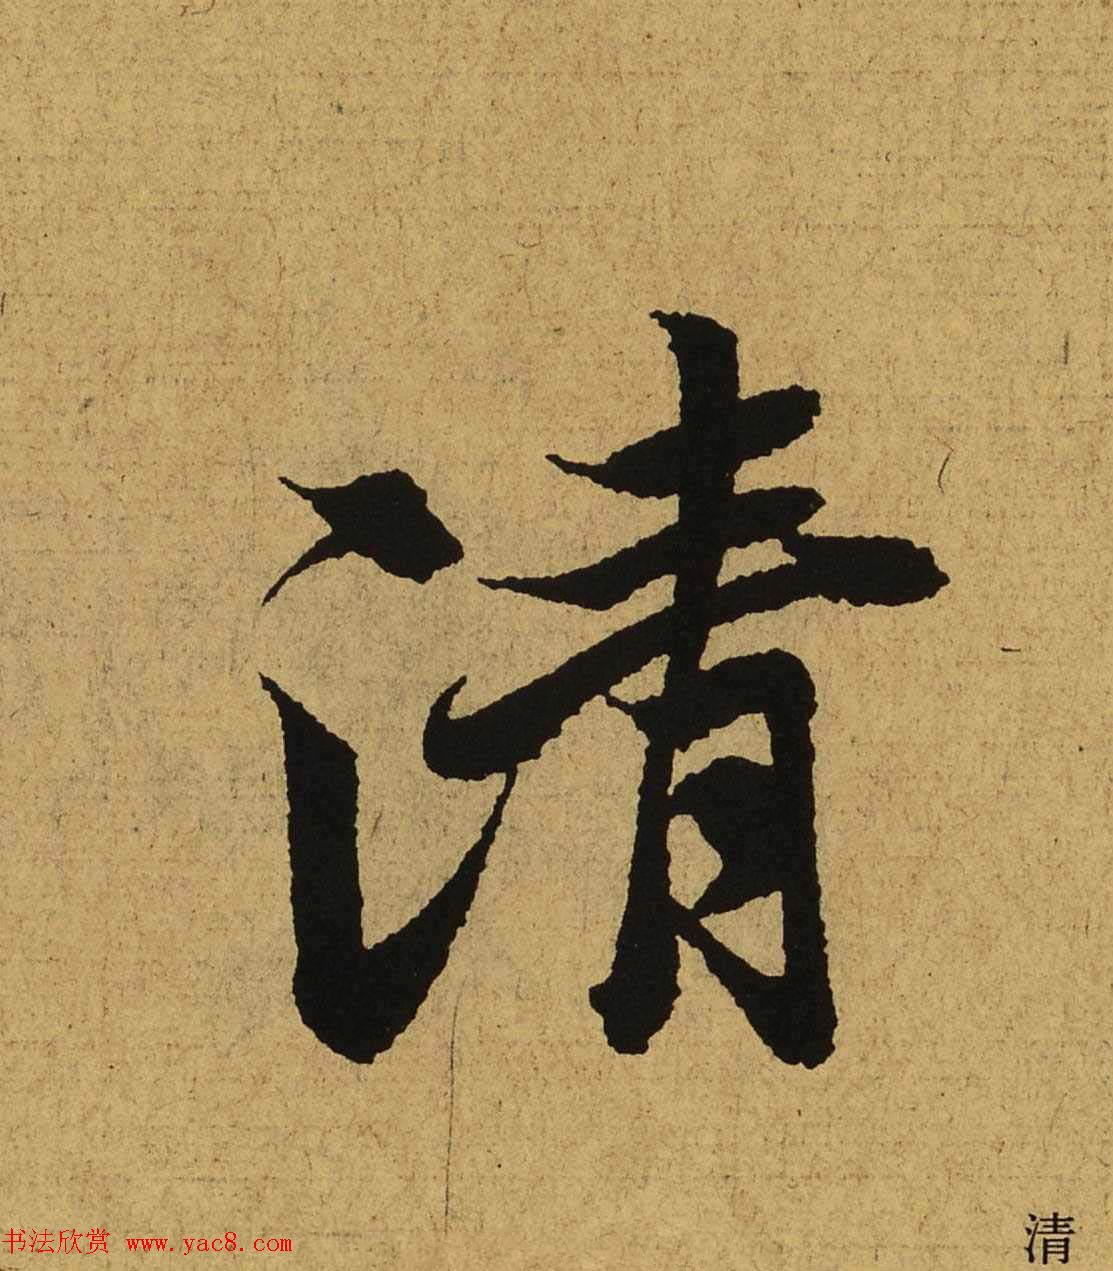 清
书法欣赏 www.yac8.com
清